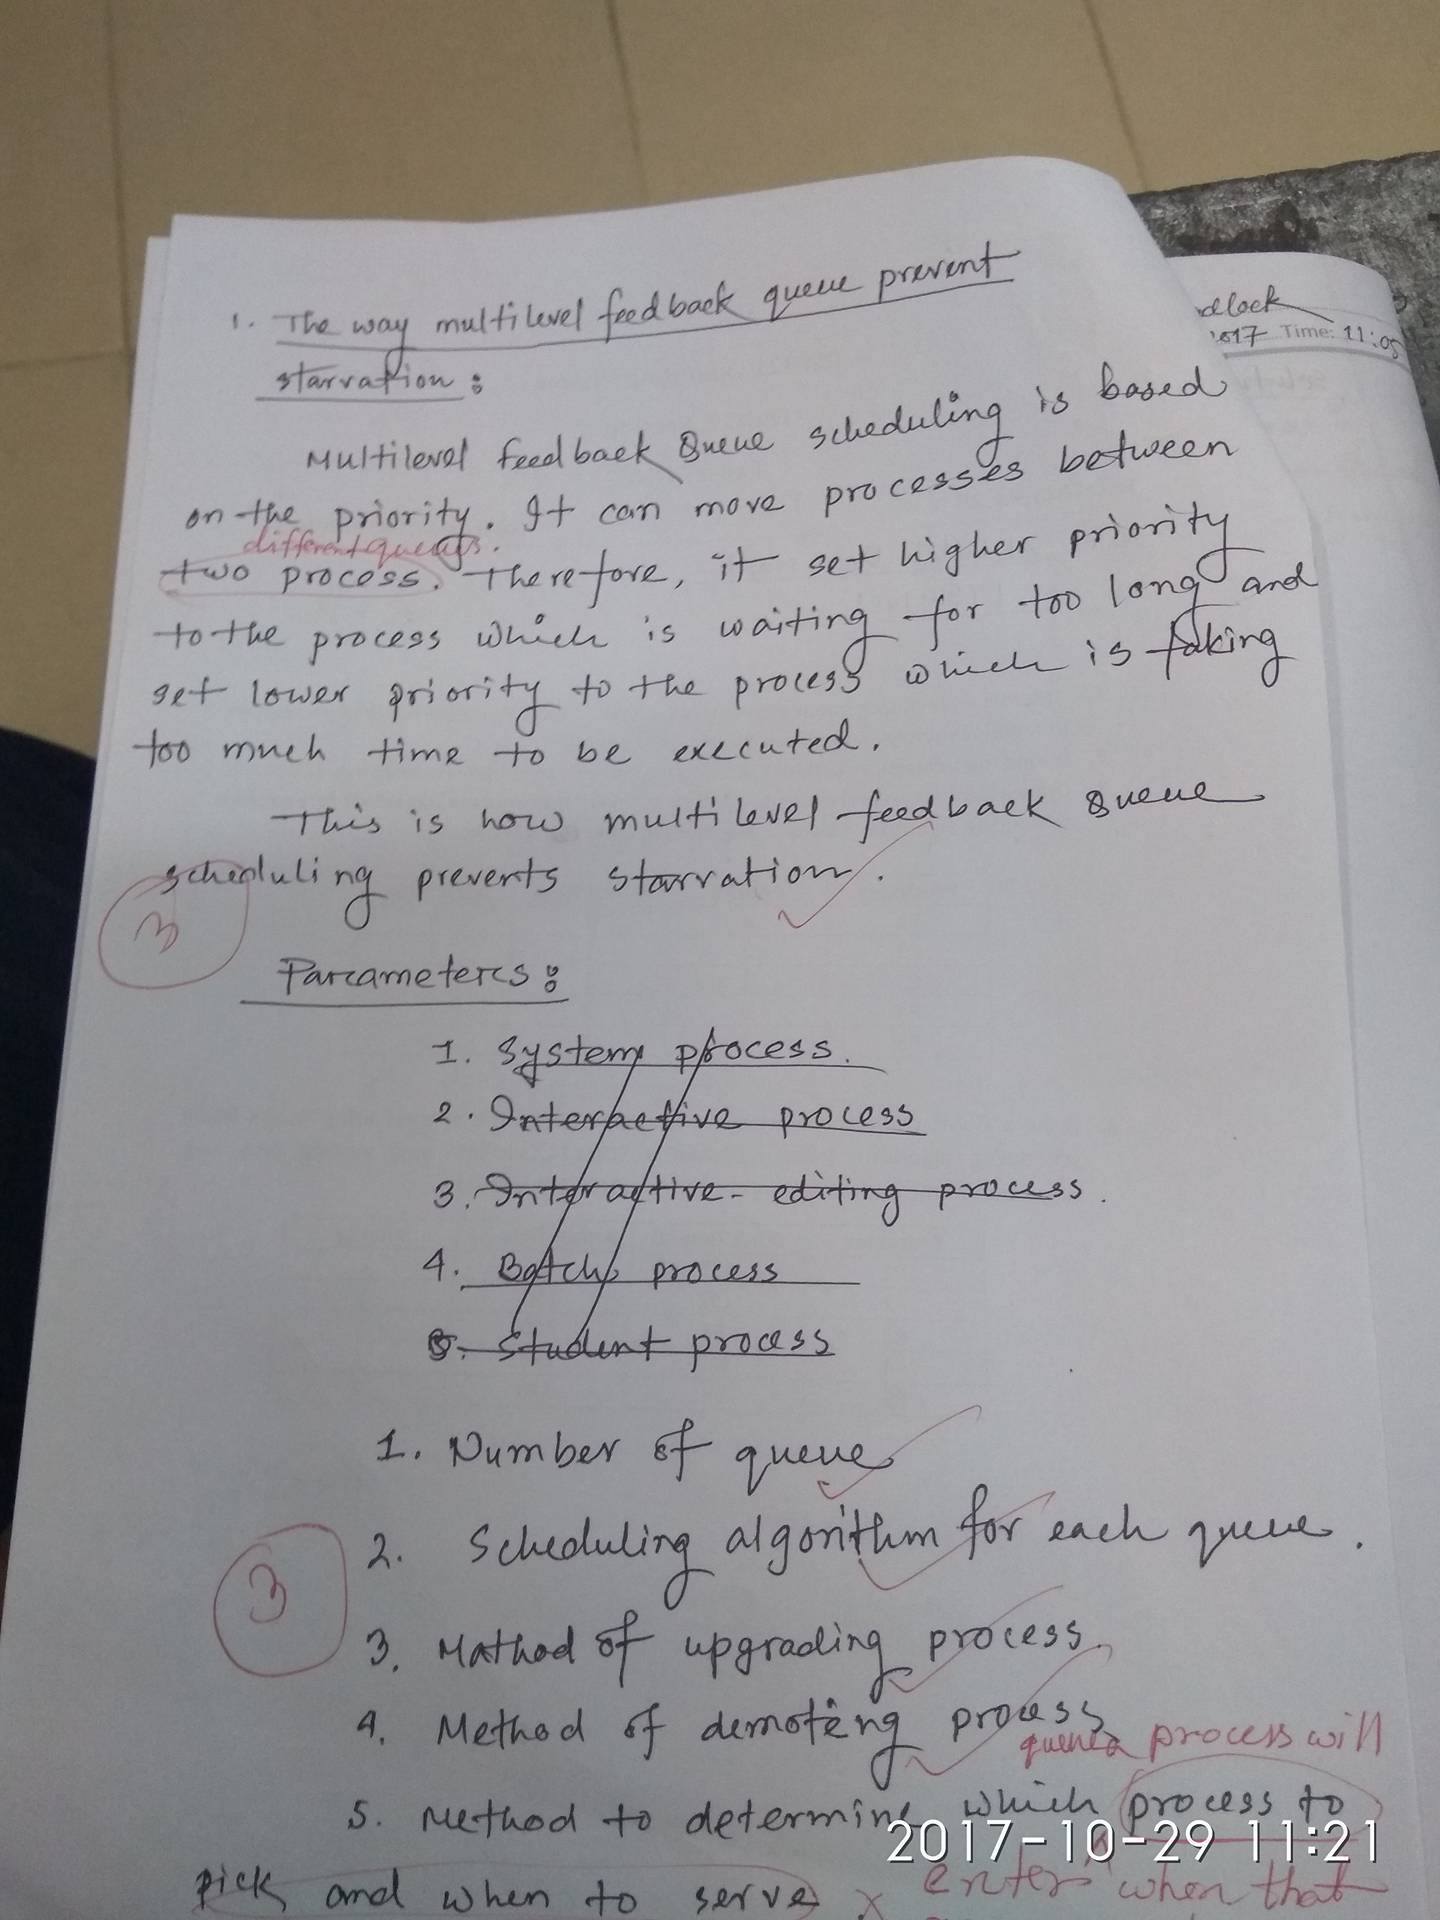 1. The way multilevel feedback queue prevent
starvation :
Multilevel feedback Queue scheduling is based
on the priority. It can move processes between
different queues.
two process. Therefore, it set higher priority
to the process which is waiting for too long and
set lower priority to the process which is taking
too much time to be executed.
This is how multilevel feedback Queue
scheduling prevents starvation.
3
Parameters :
1. System process.
2. Interactive process
3. Interactive-editing process.
4. Batch process
5. Student process
1. Number of queue
2. Scheduling algorithm for each queue.
3
3. Mathod of upgrading process.
4. Method of demoting process
process will
5. Method to determine which process to
pick and when to serve x enter when that
dlock
2017 Time: 11:05
2017-10-29 11:21